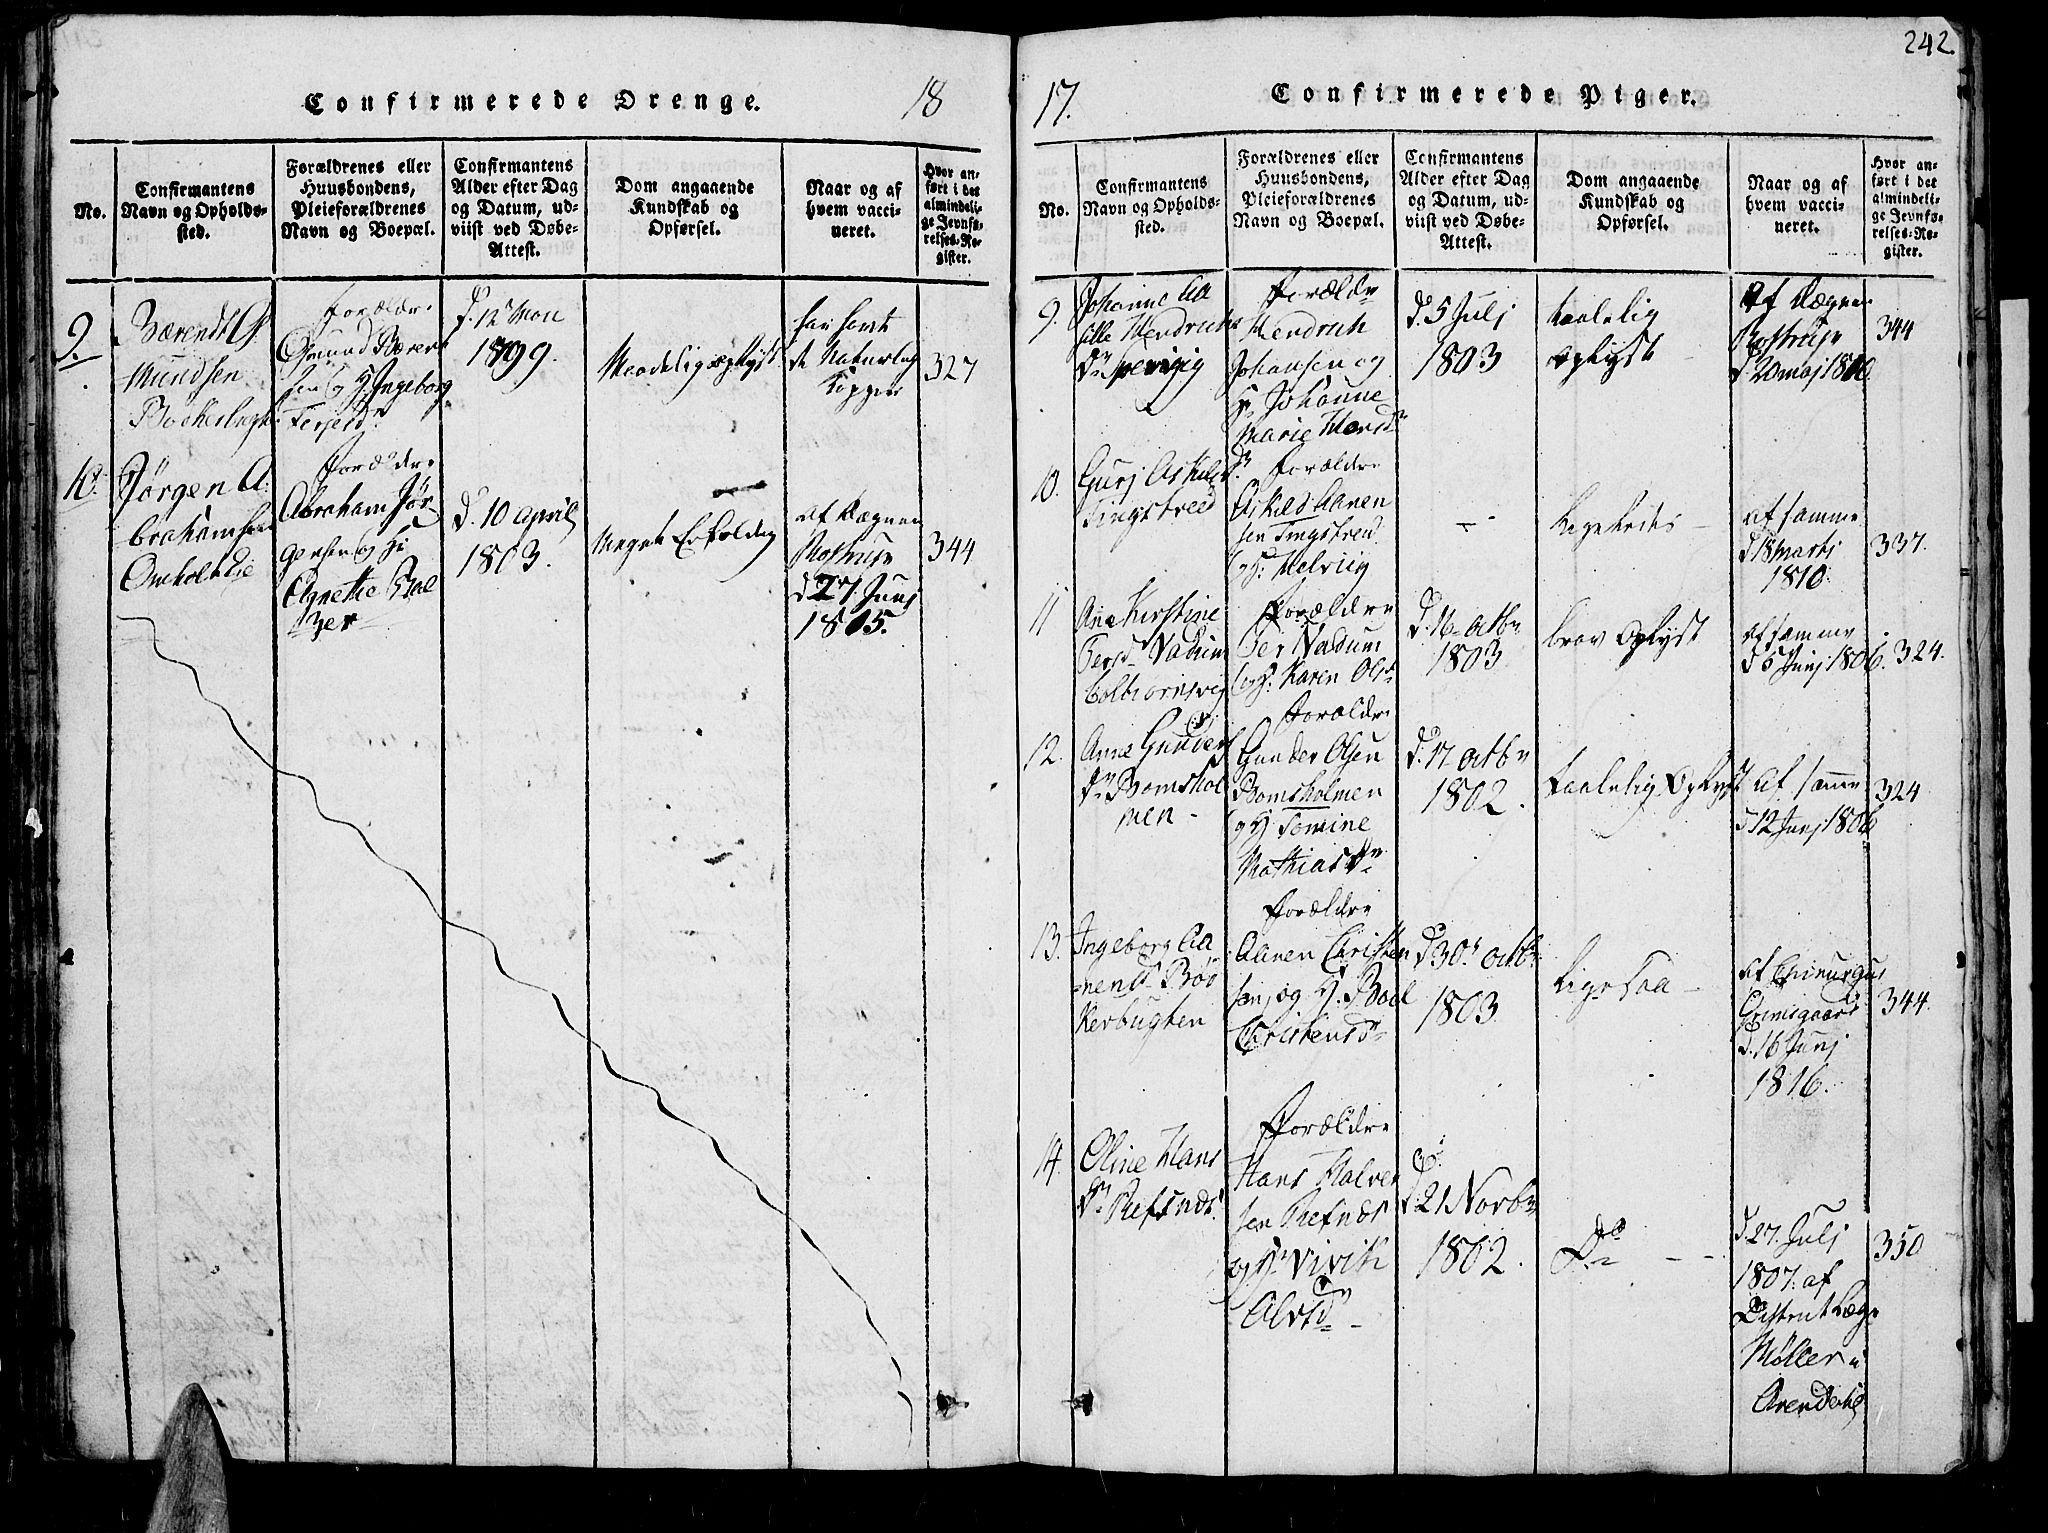 242.
Confirmerede Drenge.
18
No.
Confirmantens
Navn og Opholds-
sted.
Forældrenes eller
Huusbondens,
Pleieforældrenes
Navn og Boepæl.
Confirmantens
Alder efter Dag
og Datum, ud-
viist ved Døbe-
Attest.
Dom angaaende
Kundskab og
Opførsel.
Naar og af
hvem vacci-
neret.
Hvor an-
ført i det
almindeli-
ge Jevnfø-
relses-Re-
gister.
9.
Bærendt G
Mundsen
Forældre
Gmund Bærent
sen og H Ingeborg
Terjesdr
d. 12 Mai
1799.
Maadelig oplyst
har havt
de Naturlig
Kopper
327
10.
Jørgen A
brahamsen
Omholt
Forældre
Abraham Jør
gensen og H:
Agnethe Bal
zer
d. 10 april
1803.
Meget
af Degnen
Rostrup
d 27 Junj
1805.
344
17.
Confirmerede Piger.
No.
Confirmantens
Navn og Opholds-
sted.
Forældrenes eller
Huusbondens,
Pleieforældrenes
Navn og Boepæl.
Confirmantens
Alder efter Dag
og Datum, ud-
viist ved Døbe-
Attest.
Dom angaaende
Kundskab og
Opførsel.
Naar og af
hvem vacci-
neret.
Hvor an-
ført i det
almindeli-
ge Jevnfø-
relses-Re-
gister.
9.
Johanne Ca
sille Hendrichs
Dr
Forældre
Hendrich
Johansen og
H: Johanne
Marie
d. 5 Julj
1803
taalelig
oplyst
af Degnen
Rostrup
d 20 maj
344
10.
Gurj Askilds Dr
Tingstveed
Forældre
Askild Aanen
sen Tingstved
og H: Helvig
Ligeledes
af samme
d 18 Martj
1810.
337.
11
Ane Kirstine
Persdr Vadum
Colbiørnsvig
Forældre
Per Vadum
og H: Karen Olsdr
d. 16 octbr
1803
brav Oplyst
af samme
d 5 Junj 1806.
324.
12.
Anne Gunders
Dr Bomshol
men
Forældre
Gunder Olsen
Bomsholmen
og H Tomine
Mathias Dr
d. 17 octbr
1802.
taalelig Oplyst
af samme
d 12 Junj 1806
324
13.
Ingeborg Aa
nensdr Bøo
kerbugten
Forældre
Aanen Christen
sen og H. Boel
Christensdr
d 30. octbr
1803
Ligesaa
af Chirurgus
Grimsgaard
d. 16 Junj
1816.
344.
14.
Oline Hans
Dr Refsnæs.
Forældre
Hans Halvor
sen Refnæs
og H: Vivik
Alvsdr
d. 21 Novbr
1802.
Do
d 27. Julj
1807. af
District Læge
Møller i
Arendahl
350